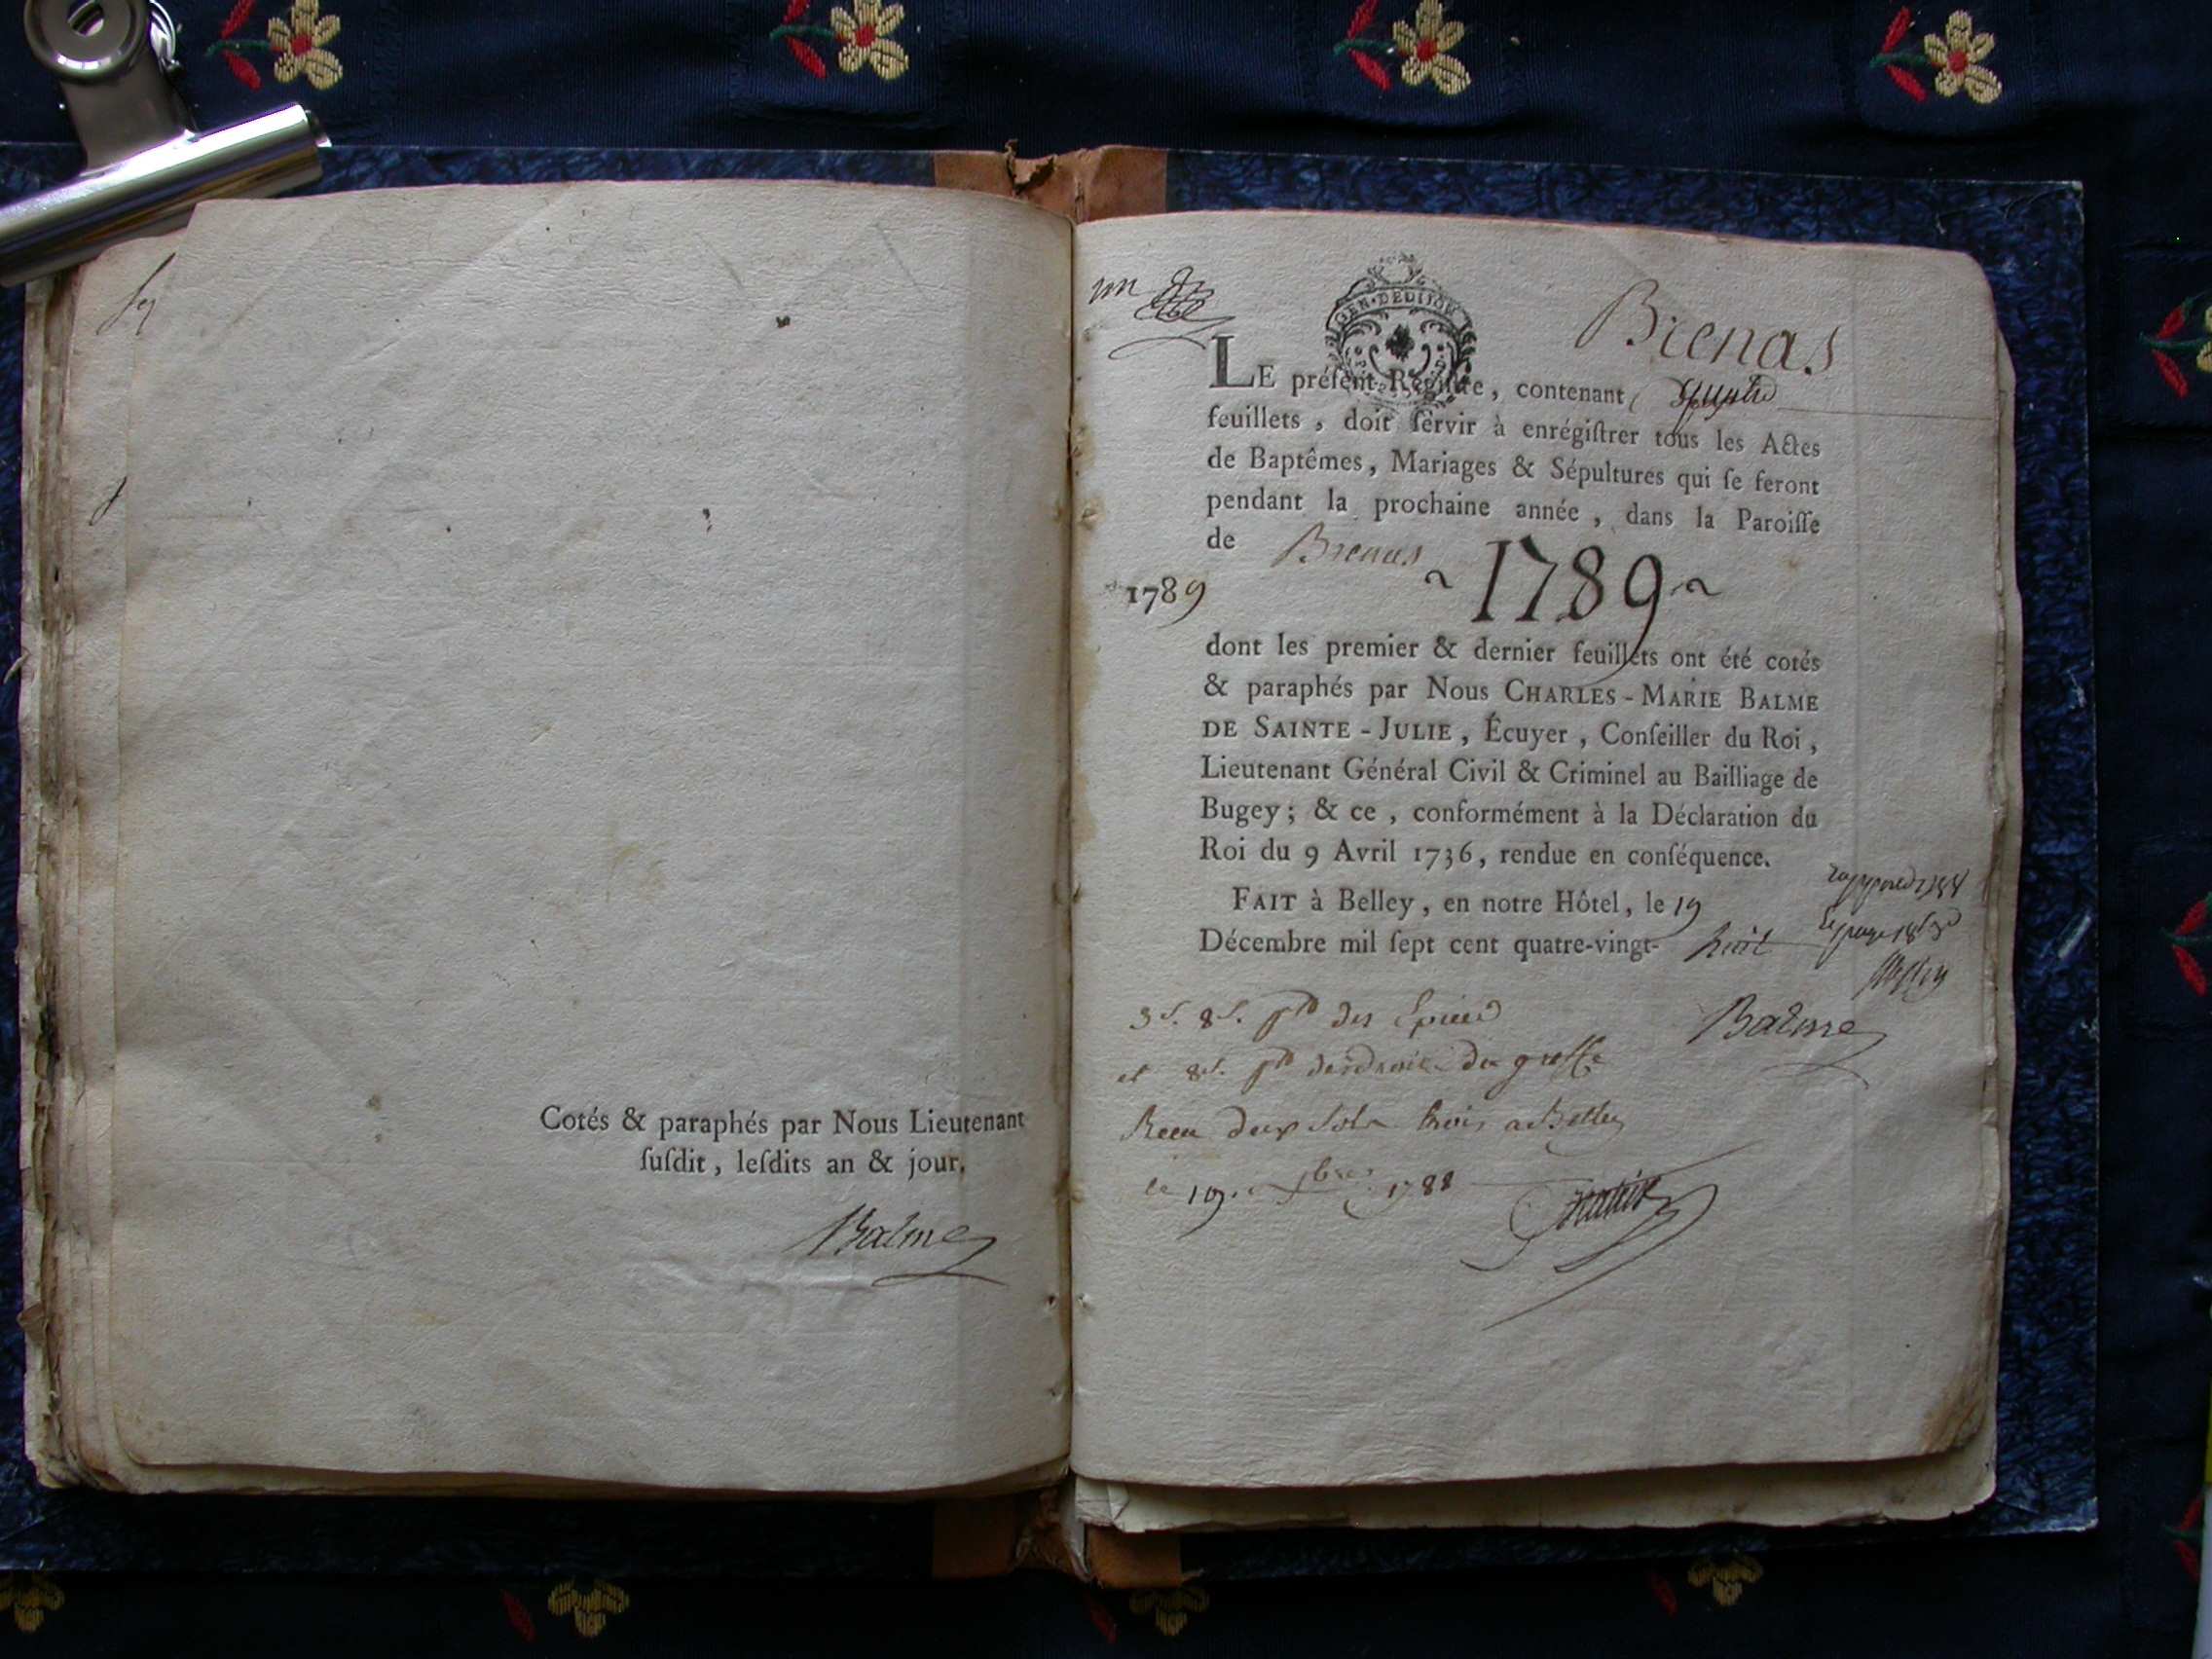 Cotés & paraphés par Nous Lieutenant
ſuſdit, leſdits an & jour.
Balme
un
GEN·DE DIJON
Brenas
LE préſent Regiſtre, contenant
feuillets, doit ſervir à enrégiſtrer tous les Actes
de Baptêmes, Mariages & Sépultures qui ſe feront
pendant la prochaine année, dans la Paroiſſe
de Brenas ~ 1789 ~
1789
dont les premier & dernier feuillets ont été cotés
& paraphés par Nous CHARLES-MARIE BALME
DE SAINTE-JULIE, Écuyer, Conſeiller du Roi,
Lieutenant Général Civil & Criminel au Bailliage de
Bugey; & ce, conformément à la Déclaration du
Roi du 9 Avril 1736, rendue en conſéquence.
FAIT à Belley, en notre Hôtel, le 19
Décembre mil ſept cent quatre-vingt- huit
Balme
des Epices
et du greffe
Receu deux sols trois a Belley
le 19. 1788